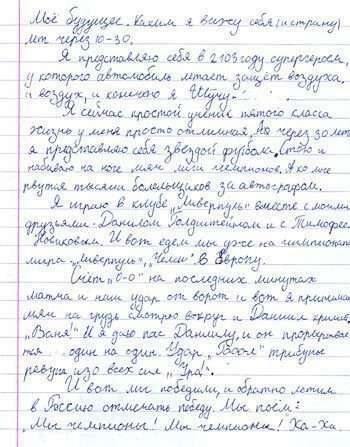 Моё будущее. каким я вижу себя (и страну)
лет через 10-30.
Я представляю себя в 2103 году супергероем,
у которого автомобиль летает защёт воздуха.
я воздух, и конечно я Шучу.
Я сейчас простой ученик пятого класса
жизнь у меня просто отличная. А через 30 лет
я представляю себя звездой футбола. Стою и
набиваю на ноге мяч лиги чемпионов. А ко мне
рвутся тысячи болельщиков за автографом.
Я играю в клубе "Ливерпуль" вместе с моими
друзьями - Данилом Голдштейном и с Тимофеем
Новиковым. И вот едем мы уже на чемпионат
мира - "Ливерпуль", "Челси" в Европу.
Счёт "0-0" на последних минутах
матча и наш удар от ворот и вот я принимаю
мяч на грудь смотрю вокруг и Даниил кричит,
"Ваня!" И я даю пас Данилу, и он прорывает
тся один на один. Удар, "Гооол" трибуны
ревут изо всех сил "Ура".
И вот мы победили, и обратно летим
в Россию отмечать победу. Мы поём:
"Мы чемпионы! Мы чемпионы! Ха-ха.